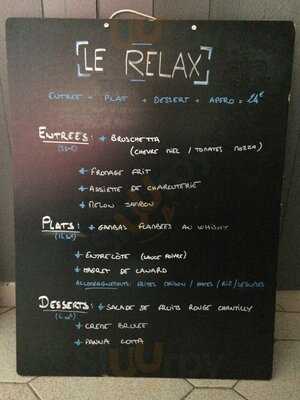 LE RELAX
ENTREE - PLAT + DESSERT + APERO = 24€
ENTREES: + BRUSCHETTA
(CHEVRE MIEL / TOMATES MOZZA)
+ FROMAGE FRIT
+ ASSIETTE DE CHARCUTERIE
+ MELON JAMBON
PLATS: + GAMBAS FLAMBEES AU WHISKY
+ ENTRECÔTE (SAUCE POIVRE)
+ MAGRET DE CANARD
ACCOMPAGNEMENTS: FRITES MAISON / PATES / RIZ / LEGUMES
DESSERTS: + SALADE DE FRUITS ROUGE CHANTILLY
+ CREME BRULEE
+ PANNA COTTA